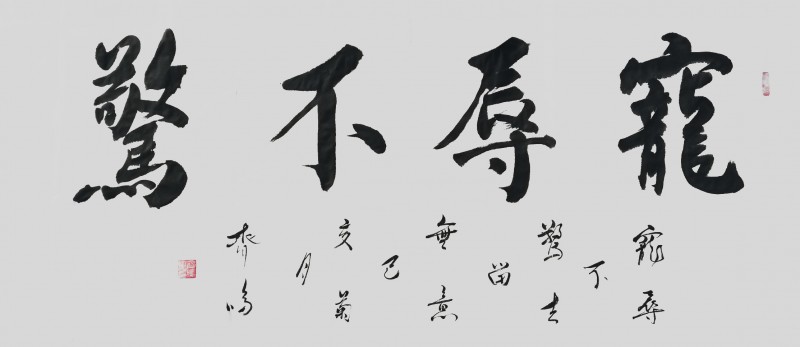 寵辱不驚
寵辱
不
驚去
留
無意
己
亥菊
月
齊鳴